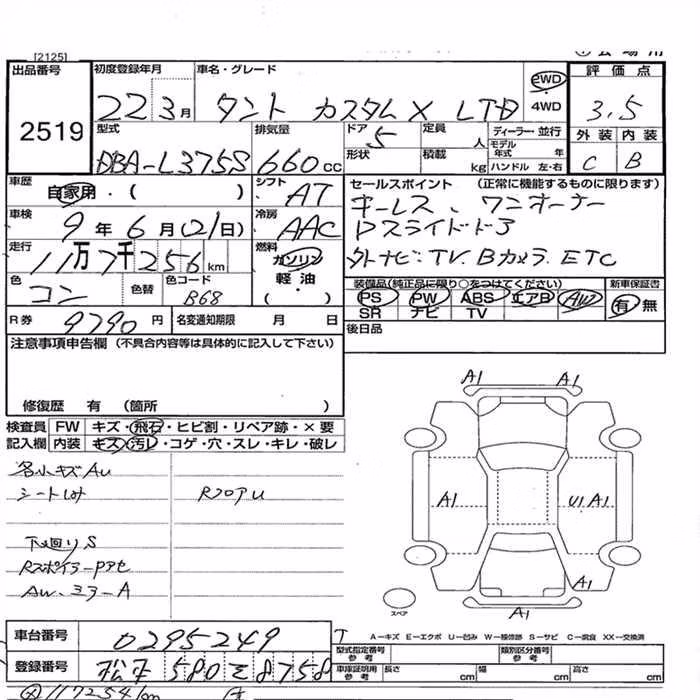 [2125]
出品番号 初度登録年月 車名・グレード 2WD 評価点
2519 22 3月 タント カスタムX LTD 4WD 3.5
型式 排気量 ドア 5 定員 人 ディーラー・並行 外装 内装
モデル 年式 年
DBA-L375S 660cc 形状 積載 kg ハンドル 左・右 C B
車歴 自家用・( ) シフト AT セールスポイント (正常に機能するものに限ります)
車検 9年6月(21日) 冷房 AAC キーレス、ワンオーナー
Pスライドドア
走行 11万7千256km 燃料 ガソリン 軽油・( ) 外ナビ・TV. Bカメラ. ETC
色 コン 色替 色コード B68 装備品(純正品に限り○をつけてください) 新車保証書
PS PW ABS エアB AW 有 無
SR ナビ TV
R券 9790円 名変通知期限 月 日 後日品
注意事項申告欄 (不具合内容等は具体的に記入して下さい)
修復歴 有 (箇所
検査員 FW キズ・飛石・ヒビ割・リペア跡・×要
記入欄 内装 キズ・汚レ・コゲ・穴・スレ・キレ・破レ
A1 A1
各小キズAU
シート RフロアU
A1 U1 A1
下廻りS
Rスポイラー
AW、ミラーA
A1
スペア
A1
A-キズ E-エクボ U-凹み W-補修跡 S-サビ C-腐食 XX-交換済
車台番号 0295249
型式指定番号 参考 類別区分番号 参考
登録番号 580 8758
車庫証明用 参考 長さ cm 幅 cm 高さ cm
117254km